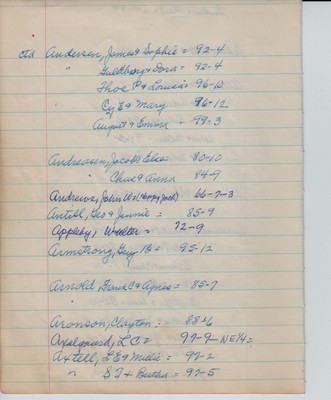 ctd Anderson, James & Sophie = 92-4
" & Dora = 92-4
Thos P & Louisa 96-10
Cy E & Mary 96-12
August & Emma = 99-3
Andreasen, Jacob & Elise 80-10
Chas & Anna 84-9
Andrews, John W. (Happy Jack) 66-7-3
Antill, Geo & Jennie = 85-9
Appleby, Wheeler = 72-9
Armstrong, Guy B = 95-12
Arnold, Frank C & Agnes = 85-7
Aronson, Clayton = 88-6
Axelgaard, L C = 97-9 NE1/4 =
Axtell, L E & Millie = 97-2
" S T & Bertha = 97-5